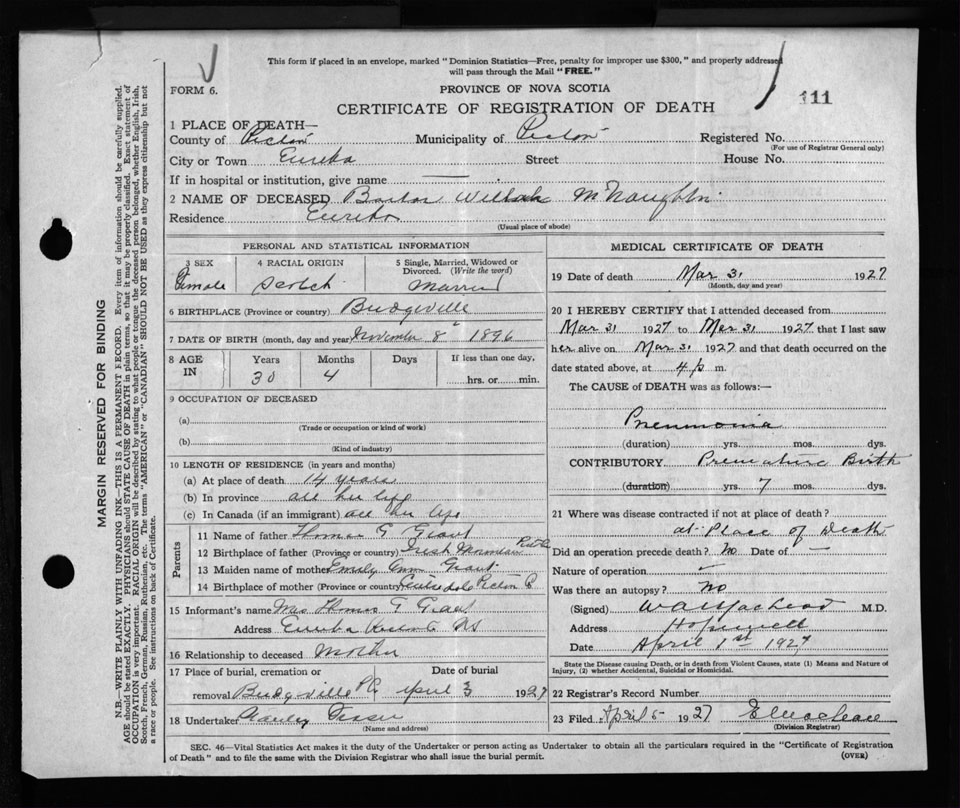 This form if placed in an envelope, marked "Dominion Statistics—Free, penalty for improper use $300," and properly addressed
will pass through the Mail "FREE."
FORM 6.
PROVINCE OF NOVA SCOTIA
CERTIFICATE OF REGISTRATION OF DEATH
111
1 PLACE OF DEATH—
County of Pictou Municipality of Pictou Registered No.
(For use of Registrar General only)
City or Town Eureka Street House No.
If in hospital or institution, give name
2 NAME OF DECEASED McNaughton
Residence Eureka
(Usual place of abode)
PERSONAL AND STATISTICAL INFORMATION
3 SEX 4 RACIAL ORIGIN 5 Single, Married, Widowed or Divorced. (Write the word)
Female Scotch Married
6 BIRTHPLACE (Province or country) Bridgeville
7 DATE OF BIRTH (month, day and year) November 8 1896
8 AGE IN Years Months Days If less than one day,
30 4 hrs. or min.
9 OCCUPATION OF DECEASED
(a)
(Trade or occupation or kind of work)
(b)
(Kind of industry)
10 LENGTH OF RESIDENCE (in years and months)
(a) At place of death 14 years
(b) In province all her life
(c) In Canada (if an immigrant) all her life
Parents
11 Name of father Thomas G Grant
12 Birthplace of father (Province or country) Irish Mountain Pictou
13 Maiden name of mother Emily Ann Grant
14 Birthplace of mother (Province or country) Centredale Pictou Co
15 Informant's name Mrs Thomas G Grant
Address Eureka Pictou Co NS
16 Relationship to deceased Mother
17 Place of burial, cremation or Date of burial
removal Bridgeville April 3 1927
18 Undertaker Fraser
(Name and address)
MEDICAL CERTIFICATE OF DEATH
19 Date of death Mar 31 1927
(Month, day and year)
20 I HEREBY CERTIFY that I attended deceased from
Mar 31 1927 to Mar 31 1927 that I last saw
her alive on Mar 31 1927 and that death occurred on the
date stated above, at 4 p m.
The CAUSE of DEATH was as follows:—
Pneumonia
(duration) yrs. mos. dys.
CONTRIBUTORY Premature Birth
(duration) yrs. 7 mos. dys.
21 Where was disease contracted if not at place of death?
at Place of Death
Did an operation precede death? No Date of —
Nature of operation
Was there an autopsy? No
(Signed) M.D.
Address Hopewell
Date April 1st 1927
State the Disease causing Death, or in death from Violent Causes, state (1) Means and Nature of
Injury, (2) whether Accidental, Suicidal or Homicidal.
22 Registrar's Record Number
23 Filed April 5 1927
(Division Registrar)
SEC. 46—Vital Statistics Act makes it the duty of the Undertaker or person acting as Undertaker to obtain all the particulars required in the "Certificate of Registration
of Death" and to file the same with the Division Registrar who shall issue the burial permit. (OVER)
MARGIN RESERVED FOR BINDING
N.B.—WRITE PLAINLY WITH UNFADING INK—THIS IS A PERMANENT RECORD. Every item of information should be carefully supplied.
AGE should be stated EXACTLY. PHYSICIANS should STATE CAUSE OF DEATH in plain terms, so that it may be properly classified. Exact statement of
OCCUPATION is very important. RACIAL ORIGIN will be described by stating to what people or tongue the deceased person belonged, whether English, Irish,
Scotch, French, German, Russian, Ruthenian, etc. The terms "AMERICAN" or "CANADIAN" SHOULD NOT BE USED as they express citizenship but not
a race or people. See instructions on back of Certificate.